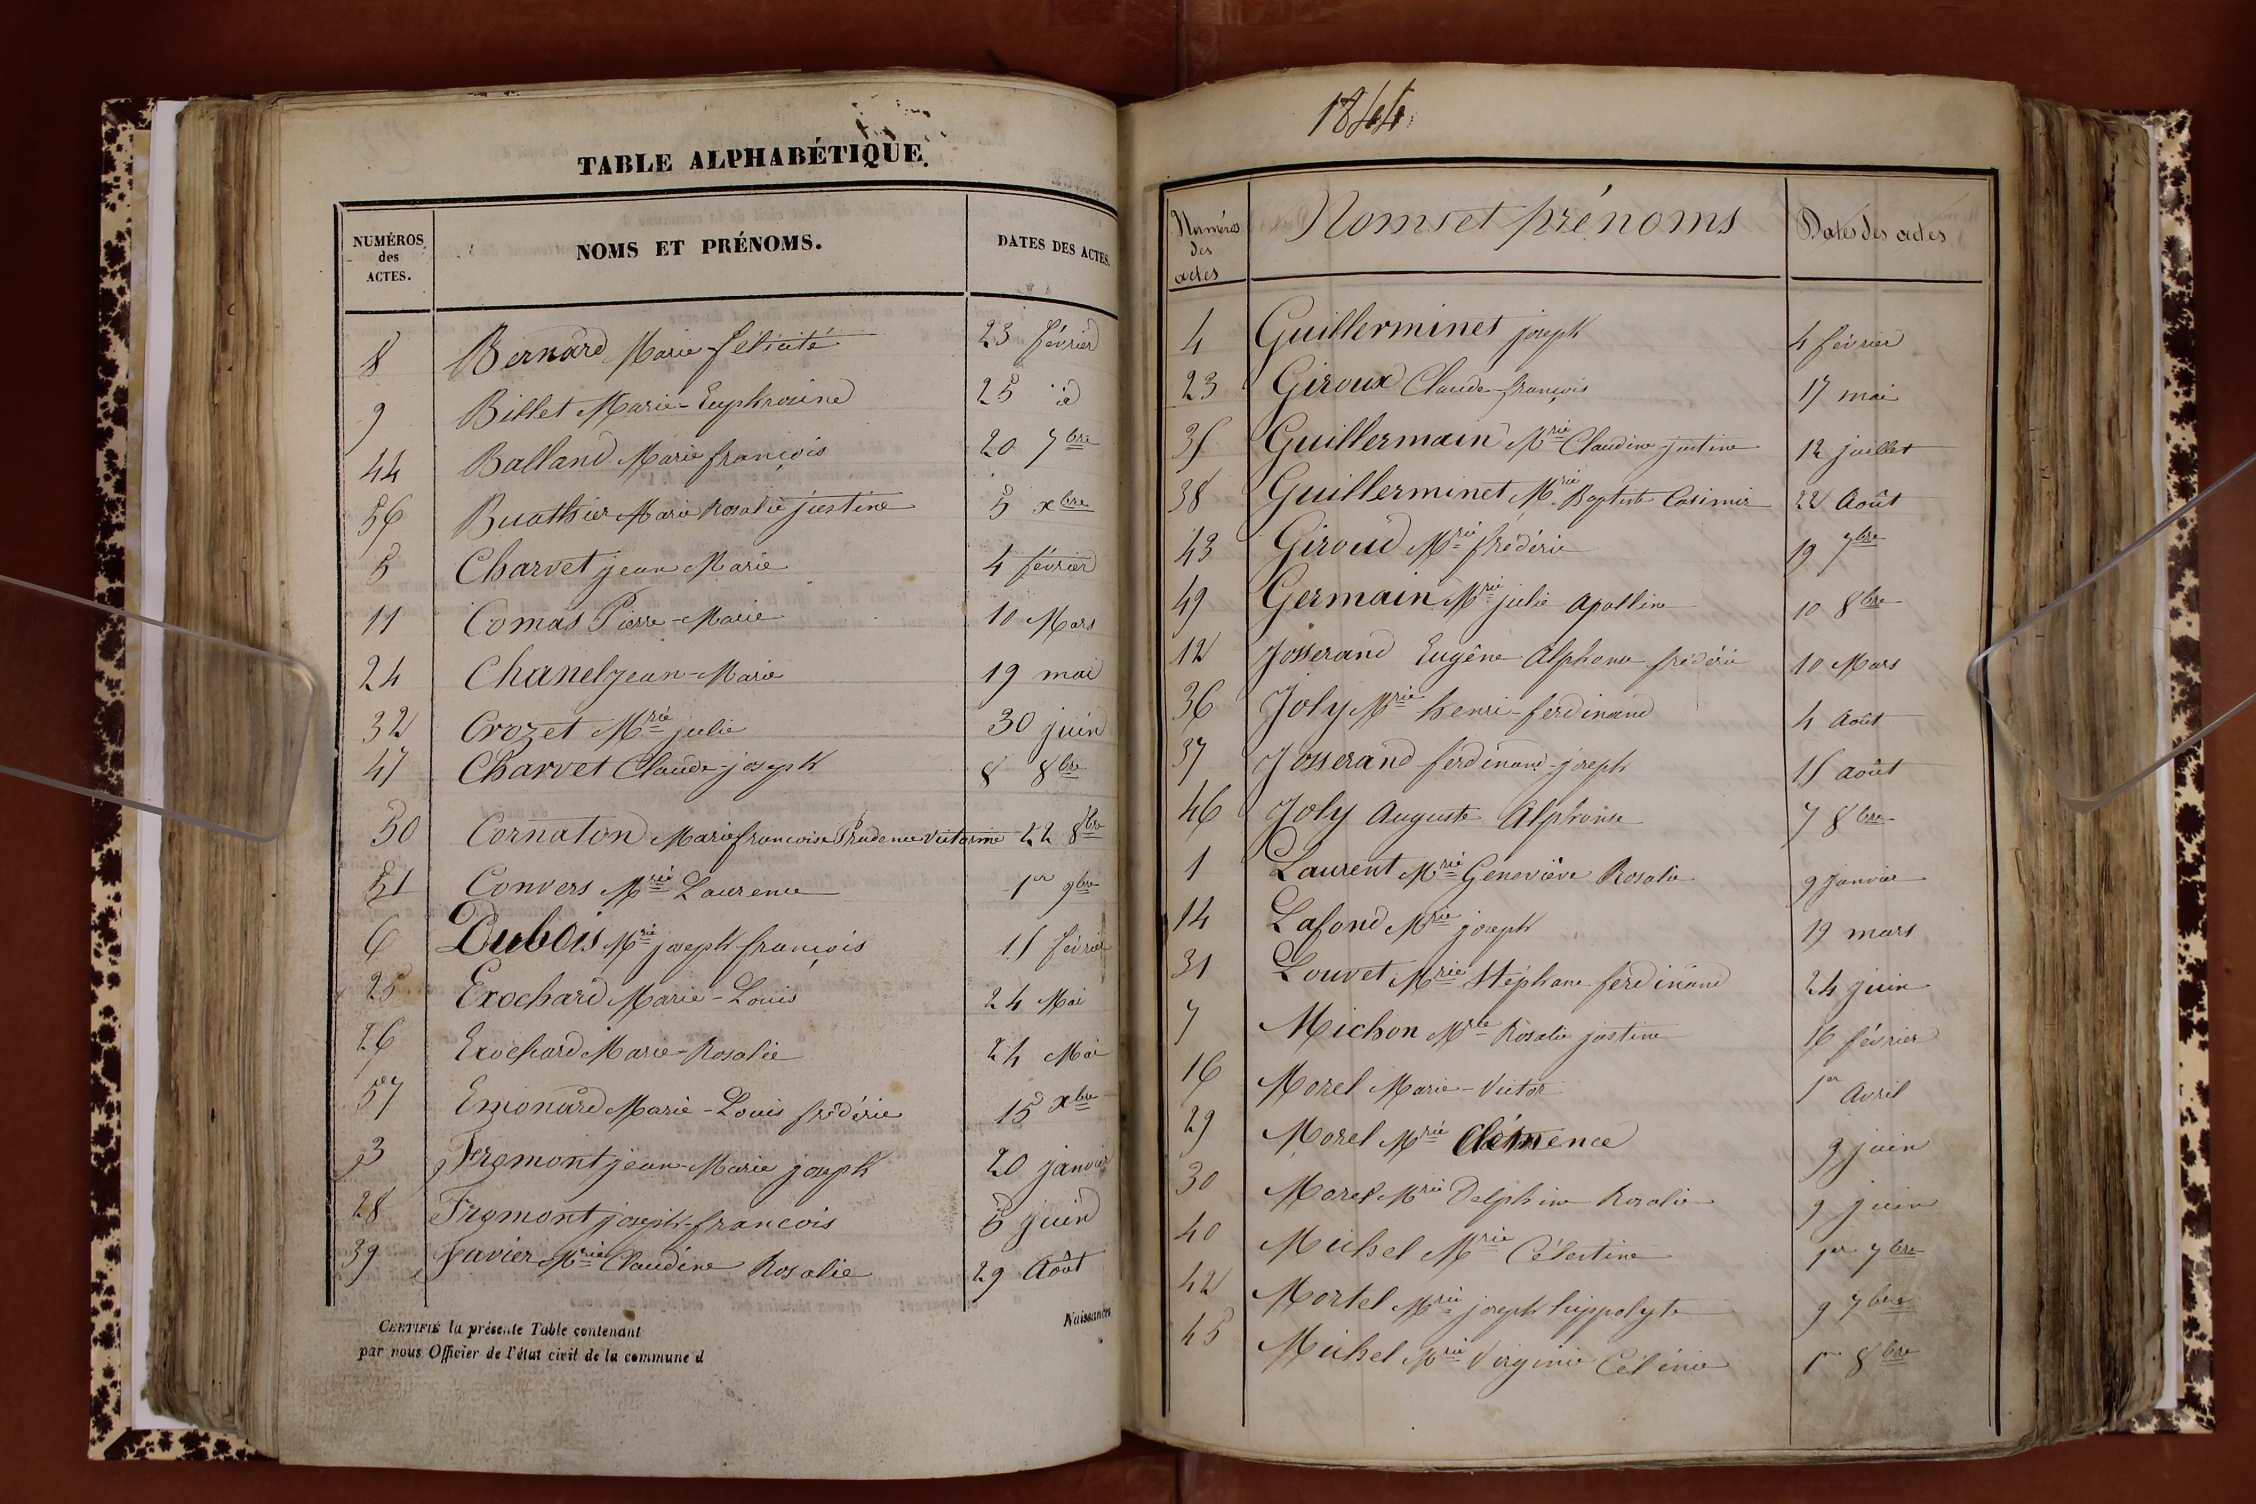 TABLE ALPHABÉTIQUE.
NUMÉROS des ACTES. NOMS ET PRÉNOMS. DATES DES ACTES.
8 Bernard Marie félicité 23 février
9 Billet Marie-Euphrosine 25 id
44 Balland Marie françois 20 7bre
56 Buathier Marie Rosalie justine 5 xbre
5 Charvet jean Marie 4 février
11 Comas Pierre-Marie 10 Mars
24 Chanel jean-Marie 19 mai
32 Crozet Mrie julie 30 juin
47 Charvet Claude-joseph 8 8bre
50 Cornaton Marie françoise Prudence Victorine 22 8bre
51 Convers Mrie Laurence 1er 9bre
6 Dubois Mrie joseph françois 15 février
25 Exochard Marie-Louis 24 Mai
26 Exochard Marie-Rosalie 24 Mai
57 Emonard Marie-Louis frédéric 15 xbre
3 Fromont jean-Marie joseph 20 janvier
28 Fromont joseph-francois 5 juin
39 Favier Mrie Claudine Rosalie 29 Août
CERTIFIÉ la présente Table contenant Naissances
par nous Officier de l'état civil de la commune d
1844
Numéros des actes Noms et prénoms Dates des actes
4 Guillerminet joseph 4 février
23 Giroux Claude-françois 17 mai
35 Guillermain Mrie Claudine justine 12 juillet
38 Guillerminet Mrie Baptiste Casimir 22 Août
43 Giroud Mrie frédéric 19 7bre
49 Germain Mrie julie Apolline 10 8bre
12 Josserand Eugêne Alphonse frédéric 10 Mars
36 Joly Mrie henri-ferdinand 4 Août
37 Josserand ferdinand-joseph 15 août
46 Joly Auguste Alphonse 7 8bre
1 Laurent Mrie Geneviève Rosalie 9 Janvier
14 Lafond Mrie joseph 19 mars
31 Louvet Mrie Stéphane ferdinand 24 juin
7 Michon Mrie Rosalie justine 16 février
16 Morel Marie-Victor 1er Avril
29 Morel Mrie Clémence 9 juin
30 Morel Mrie Delphine Rosalie 9 juin
40 Michel Mrie Célestine 1er 7bre
42 Mortel Mrie joseph hippolyte 9 7bre
45 Michel Mrie Virginie Célénie 1er 8bre